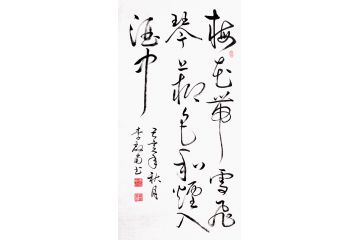 梅花带雪飛
琴上柳色和煙入
酒中
己亥年秋月
李啟富书